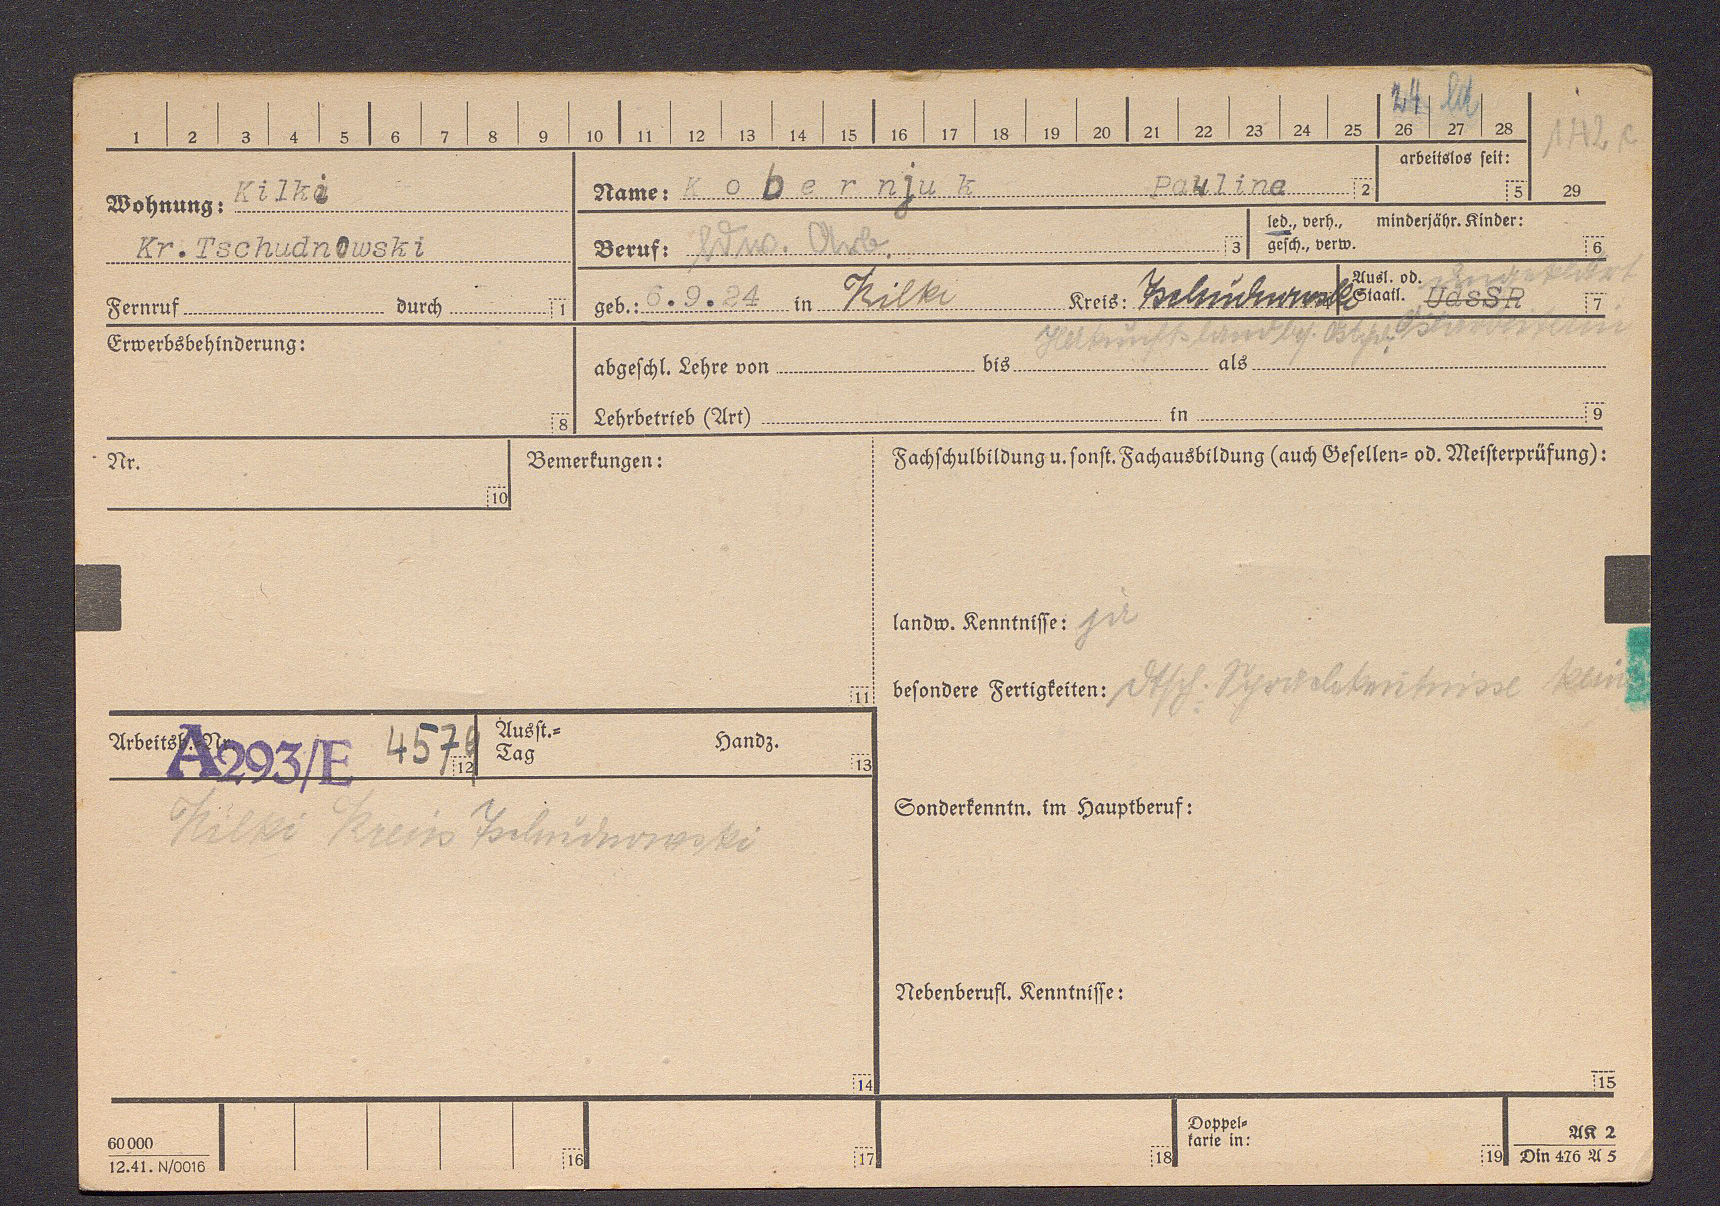 24
1 2 3 4 5 6 7 8 9 10 11 12 13 14 15 16 17 18 19 20 21 22 23 24 25 26 27 28
arbeitslos seit:
5 29
Wohnung: Kilki
Kr.Tschudnowski
Fernruf durch 1
Name: Kobernjuk Pauline 2
Beruf: ldw. Arb. 3
led., verh., gesch., verw.
minderjähr. Kinder: 6
geb.: 6.9.24 in Kilki Kreis: Tschudnowski
Ausl. od. Staatl. UdSSR 7
ungeklärt
Ostarbeiterin
Erwerbsbehinderung:
8
abgeschl. Lehre von bis als
Lehrbetrieb (Art) in 9
Nr.
10
Bemerkungen:
11
Fachschulbildung u. sonst. Fachausbildung (auch Gesellen= od. Meisterprüfung):
landw. Kenntnisse: ja
besondere Fertigkeiten: dtsch. Sprachkentnisse keine
Arbeitsb. Nr. A293/E 4570 12
Ausst.=
Tag Handz. 13
Kilki Kreis Tschudnowski
14
Sonderkenntn. im Hauptberuf:
Nebenberufl. Kenntnisse:
15
60000
12.41. N/0016
16 17 18
Doppel=
karte in: 19
AK 2
Din 476 A 5